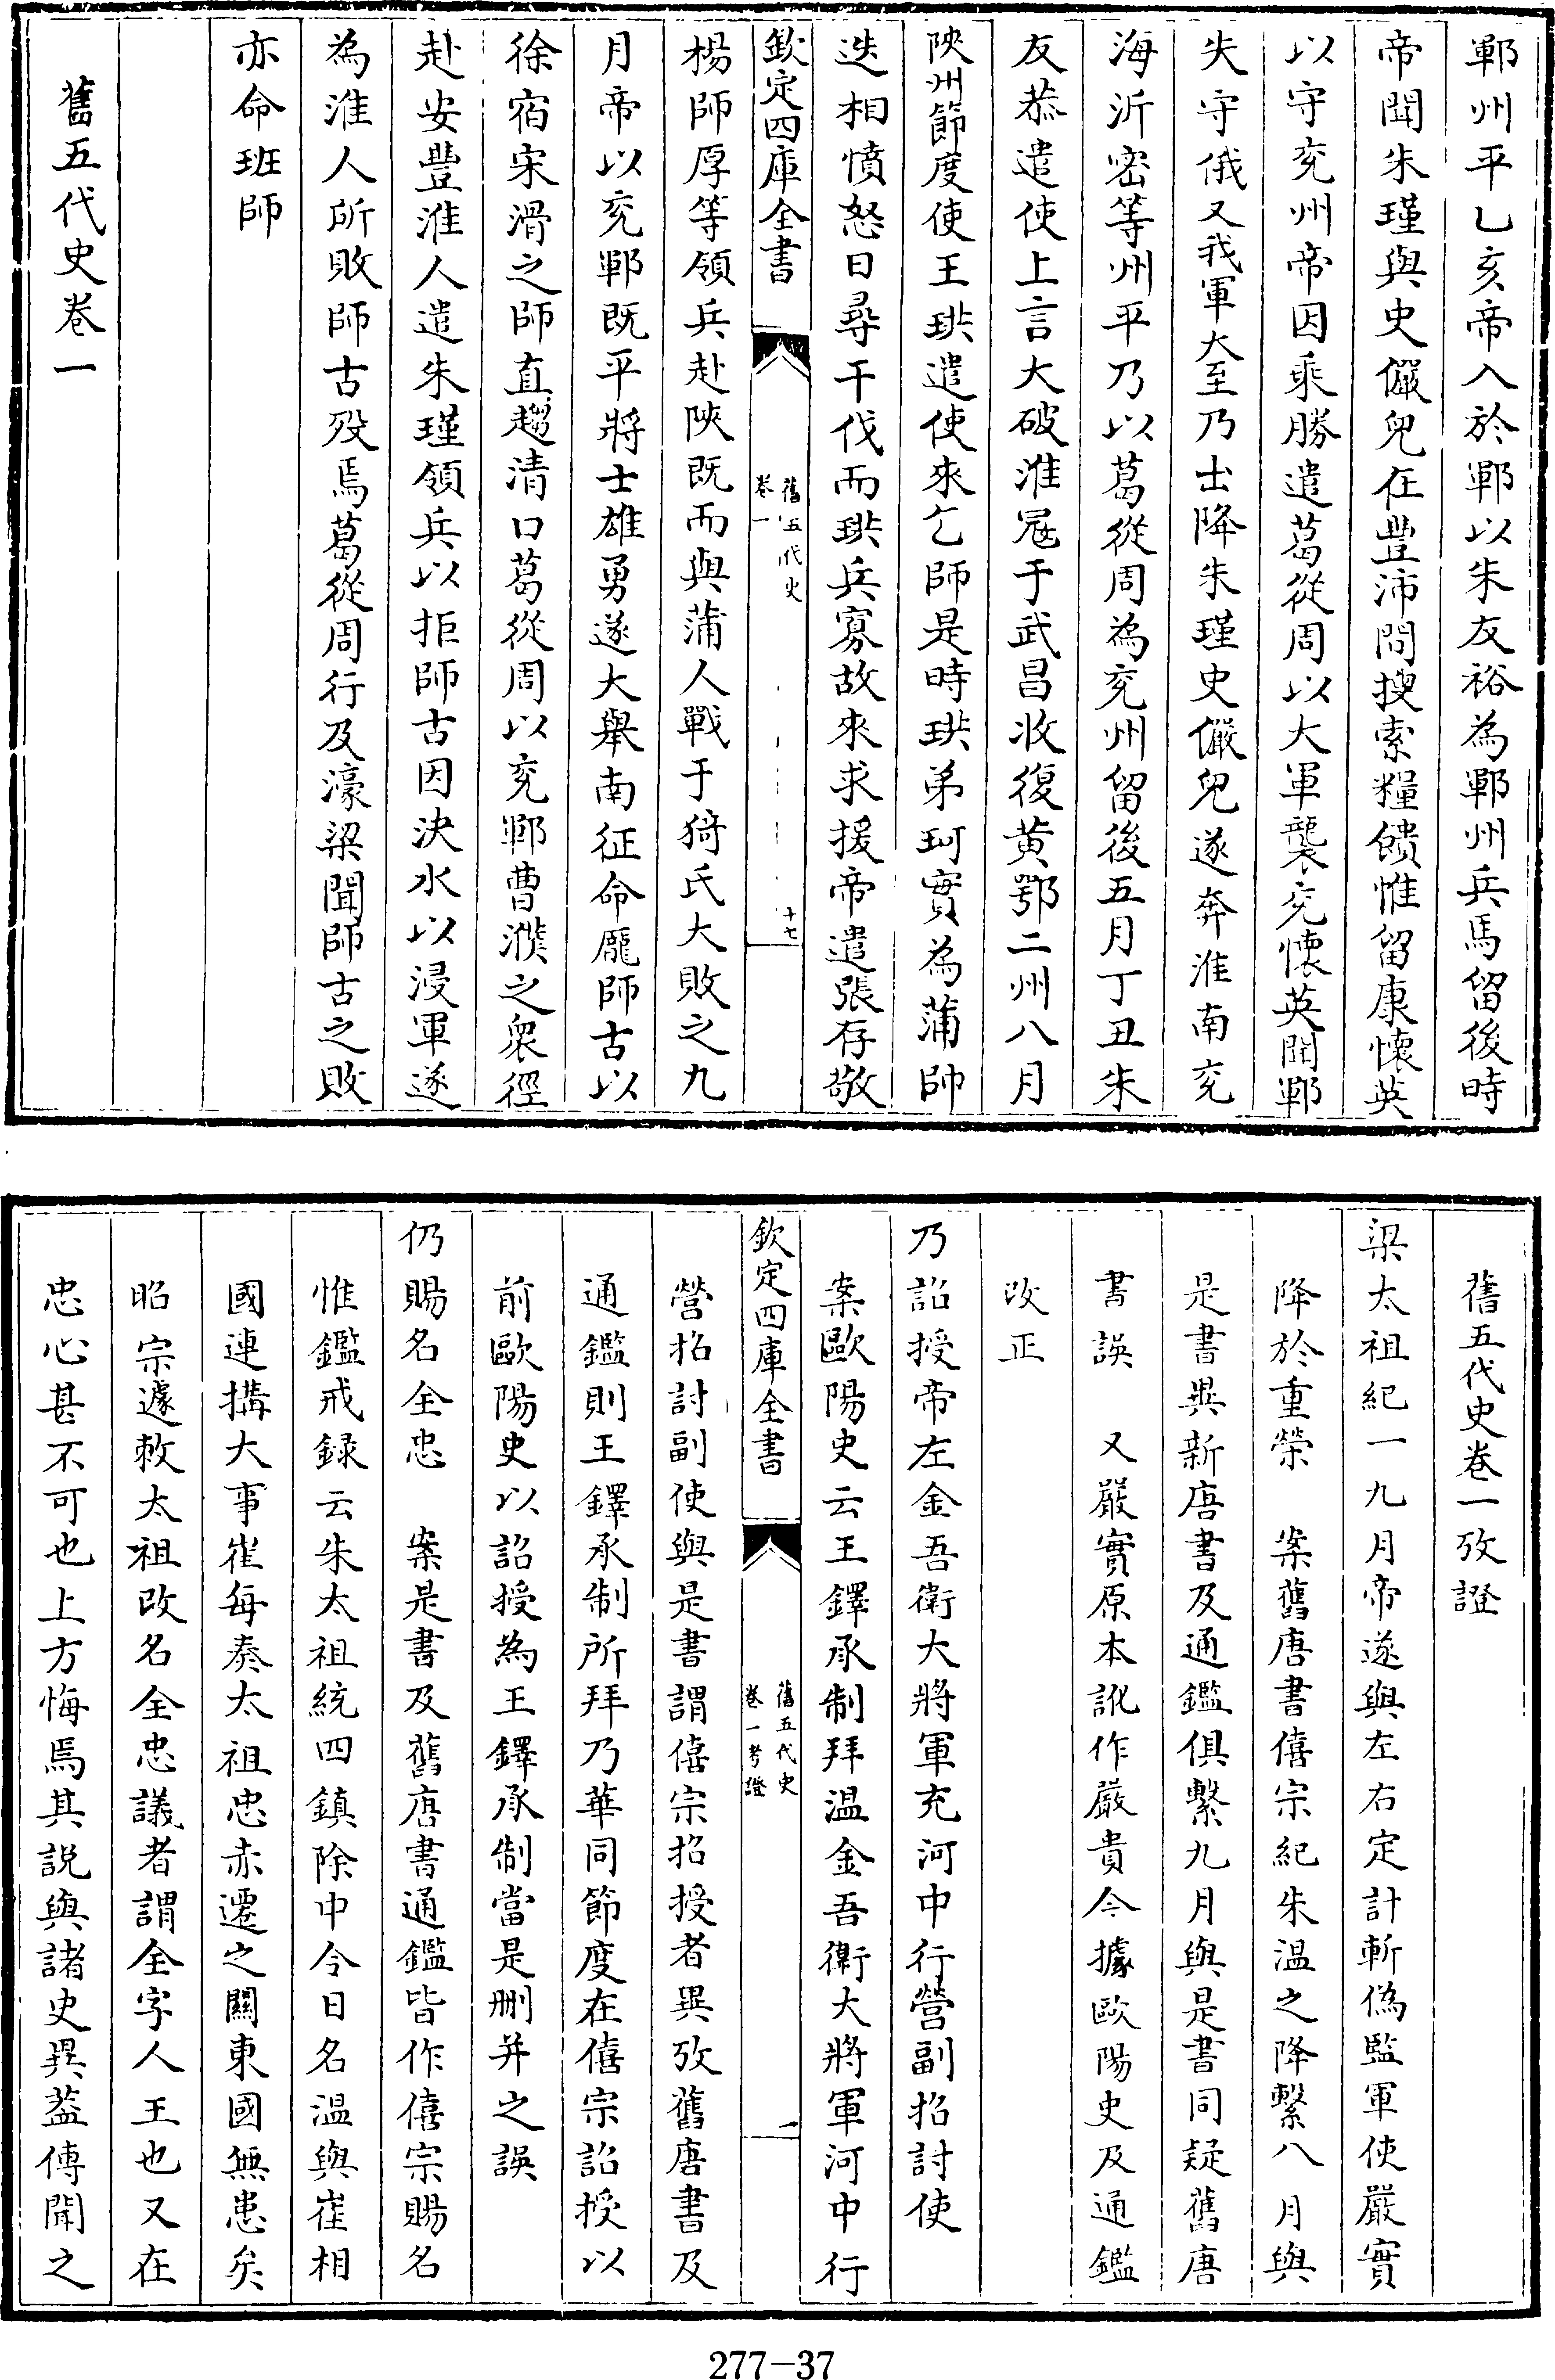 鄆州平乙亥帝入於鄆以朱友裕為鄆州兵馬留後時
帝聞朱瑾與史儼兒在豐沛間搜索糧饋惟留康懷英
以守兖州帝因乘勝遣葛從周以大軍襲兖懷英聞鄆
失守俄又我軍大至乃出降朱瑾史儼兒遂奔淮南兖
海沂密等州平乃以葛從周為兖州留後五月丁丑朱
友恭遣使上言大破淮冦于武昌收復黄鄂二州八月
陜州節度使王珙遣使來乞師是時珙弟珂實為蒲帥
迭相憤怒日尋干伐而珙兵寡故來求援帝遣張存敬
欽定四庫全書
舊五代史
卷一
十七
楊師厚等領兵赴陜既而與蒲人戰于猗氏大敗之九
月帝以兖鄆既平將士雄勇遂大舉南征命龎師古以
徐宿宋滑之師直趨清口葛從周以兖鄆曹濮之衆徑
赴安豐淮人遣朱瑾領兵以拒師古因決水以浸軍遂
為淮人所敗師古歿焉葛從周行及濠梁聞師古之敗
亦命班師
舊五代史卷一
舊五代史卷一攷證
梁太祖紀一九月帝遂與左右定計斬偽監軍使嚴實
降於重榮 案舊唐書僖宗紀朱温之降繫八月與
是書異新唐書及通鑑俱繫九月與是書同疑舊唐
書誤 又嚴實原本訛作嚴貴今據歐陽史及通鑑
改正
乃詔授帝左金吾衛大將軍充河中行營副招討使
案歐陽史云王鐸承制拜温金吾衛大將軍河中行
欽定四庫全書
舊五代史
卷一考證
一
營招討副使與是書謂僖宗招授者異攷舊唐書及
通鑑則王鐸承制所拜乃華同節度在僖宗詔授以
前歐陽史以詔授為王鐸承制當是刪并之誤
仍賜名全忠 案是書及舊唐書通鑑皆作僖宗賜名
惟鑑戒録云朱太祖統四鎮除中令日名温與崔相
國連搆大事崔每奏太祖忠赤遷之關東國無患矣
昭宗遽敕太祖改名全忠議者謂全字人王也又在
忠心甚不可也上方悔焉其説與諸史異葢傳聞之
277-37